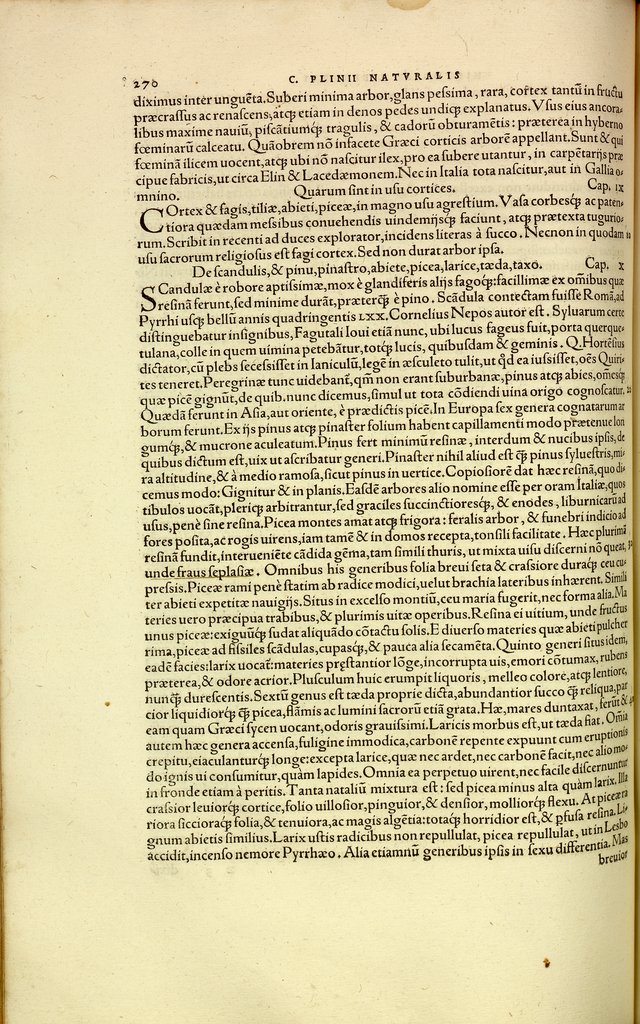 270 C. PLINII NATVRALIS
diximus inter unguẽta. Suberi minima arbor, glans peſsima, rara, cortex tantũ in fructu
præcraſſus ac renaſcens, atq; etiam in denos pedes undiq; explanatus. Vſus eius ancora-
libus maxime nauiũ, piſcãtiumq; tragulis, & cadorũ obturamẽtis: præterea in hyberno
fœminarũ calceatu. Quãobrem nõ infacete Græci corticis arborẽ appellant. Sunt & qui
fœminã ilicem uocent, atq; ubi nõ naſcitur ilex, pro ea ſubere utantur, in carpẽtarijs præ
cipue fabricis, ut circa Elin & Lacedæmonem. Nec in Italia tota naſcitur, aut in Gallia o-
mnino. Quarum ſint in uſu cortices. Cap. IX
COrtex & fagis, tiliæ, abieti, piceæ, in magno uſu agreſtium. Vaſa corbesq; ac paten-
tiora quædam meſsibus conuehendis uindemijsq; faciunt, atq; prætexta tugurio-
rum. Scribit in recenti ad duces explorator, incidens literas à ſucco. Necnon in quodam
uſu ſacrorum religioſus eſt fagi cortex. Sed non durat arbor ipſa.
De ſcandulis, & pinu, pinaſtro, abiete, picea, larice, tæda, taxo. Cap. X
SCandulæ è robore aptiſsimæ, mox è glandiferis alijs fagoq;: facillimæ ex om̃ibus quæ
reſinã ferunt, ſed minime durãt, præterq; è pino. Scãdula contectam fuiſſe Romã, ad
Pyrrhi uſq; bellũ annis quadringentis LXX. Cornelius Nepos autor eſt. Syluarum certe
diſtinguebatur inſignibus, Fagutali Ioui etiã nunc, ubi lucus fageus fuit, porta querque-
tulana, colle in quem uimina petebãtur, totq; lucis, quibuſdam & geminis. Q. Hortẽſius
dictator, cũ plebs ſeceſsiſſet in Ianiculũ, legẽ in æſculeto tulit, ut qd ea iuſsiſſet, oẽs Quiri-
tes teneret. Peregrinæ tunc uidebant̃, qm̃ non erant ſuburbanæ, pinus atq; abies, om̃esq;
quæ picẽ gignũt, de quib. nunc dicemus, ſimul ut tota cõdiendi uina origo cognoſcatur.
Quædã ferunt in Aſia, aut oriente, è prædictis picẽ. In Europa ſex genera cognatarum ar
borum ferunt. Ex ijs pinus atq; pinaſter folium habent capillamenti modo prætenue lon
gumq;, & mucrone aculeatum. Pinus fert minimũ reſinæ, interdum & nucibus ipſis, de
quibus dictum eſt, uix ut aſcribatur generi. Pinaſter nihil aliud eſt q̃ pinus ſylueſtris, mi-
ra altitudine, & à medio ramoſa, ſicut pinus in uertice. Copioſiorẽ dat hæc reſinã, quo di-
cemus modo: Gignitur & in planis. Eaſdẽ arbores alio nomine eſſe per oram Italiæ, quos
tibulos uocãt, pleriq; arbitrantur, ſed graciles ſuccinctioresq;, & enodes, liburnicarũ ad
uſus, penè ſine reſina. Picea montes amat atq; frigora: feralis arbor, & funebri indicio ad
fores poſita, ac rogis uirens, iam tamẽ & in domos recepta, tonſili facilitate. Hæc plurimã
reſinã fundit, interueniẽte cãdida gẽma, tam ſimili thuris, ut mixta uiſu diſcerni nõ queat,
unde fraus ſeplaſiæ. Omnibus his generibus folia breui ſeta & craſsiore duraq; ceu cu-
preſsis. Piceæ rami penè ſtatim ab radice modici, uelut brachia lateribus inhærent. Simili
ter abieti expetitæ nauigijs. Situs in excelſo montiũ, ceu maria fugerit, nec forma alia. Ma
teries uero præcipua trabibus, & plurimis uitæ operibus. Reſina ei uitium, unde fructus
unus piceæ: exiguũq; ſudat aliquãdo cõtactu ſolis. E diuerſo materies quæ abieti pulcher
rima, piceæ ad fiſsiles ſcãdulas, cupasq;, & pauca alia ſecamẽta. Quinto generi ſitus idem,
eadẽ facies: larix uocat̃: materies præſtantior lõge, incorrupta uis, emori cõtumax, rubens
præterea, & odore acrior. Pluſculum huic erumpit liquoris, melleo colore, atq; lentiore,
nunq̃ dureſcentis. Sextũ genus eſt tæda proprie dicta, abundantior ſucco q̃ reliqua, par
cior liquidiorq; q̃ picea, flãmis ac lumini ſacrorũ etiã grata. Hæ, mares duntaxat, ferũt &
eam quam Græci ſycen uocant, odoris grauiſsimi. Laricis morbus eſt, ut tæda fiat. Om̃ia
autem hæc genera accenſa, fuligine immodica, carbonẽ repente expuunt cum eruptionis
crepitu, eiaculanturq; longe: excepta larice, quæ nec ardet, nec carbonẽ facit, nec alio mo-
do ignis ui conſumitur, quàm lapides. Omnia ea perpetuo uirent, nec facile diſcernuntur
in fronde etiam à peritis. Tanta nataliũ mixtura eſt: ſed picea minus alta quàm larix. Illa
craſsior leuiorq; cortice, folio uilloſior, pinguior, & denſior, molliorq; flexu. At piceæ ra
riora ſiccioraq; folia, & tenuiora, ac magis algẽtia: totaq; horridior eſt, & pfuſa reſina. Li-
gnum abietis ſimilius. Larix uſtis radicibus non repullulat, picea repullulat, ut in Lesbo
accidit, incenſo nemore Pyrrhæo. Alia etiamnũ generibus ipſis in ſexu differentia. Mas
breuior